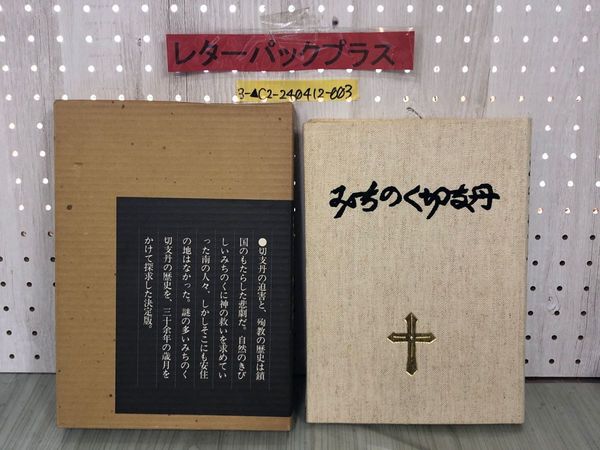 レターパックプラス
3-▲C2-240412-e03
●切支丹の迫害と、殉教の歴史は鎖
国のもたらした悲劇だ。自然のきび
しいみちのくに神の救いを求めてい
った南の人々、しかしそこにも安住
の地はなかった。謎の多いみちのく
切支丹の歴史を、三十余年の歳月を
かけて探求した決定版。
みちのく切支丹